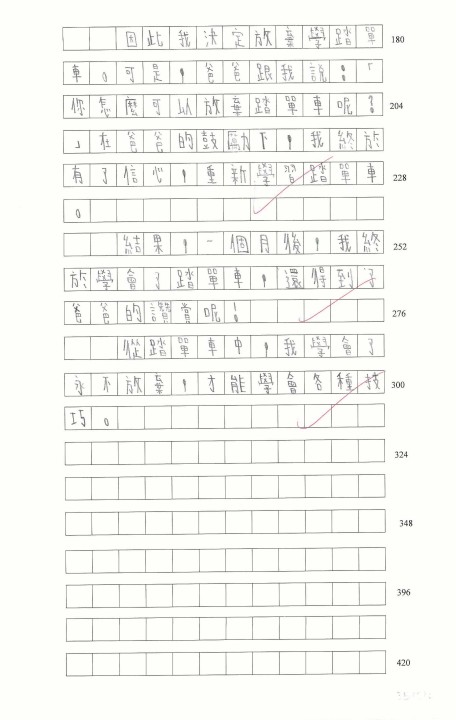 因此我決定放棄學踏單 180
車。可是，爸爸跟我說：「
你怎麼可以放棄踏單車呢？ 204
」在爸爸的鼓勵下，我終於
有了信心，重新學習踏單車 228
。
結果，一個月後，我終 252
於學會了踏單車，還得到了
爸爸的讚賞呢！ 276
從踏單車中，我學會了
永不放棄，才能學會各種技 300
巧。
324
348
396
420